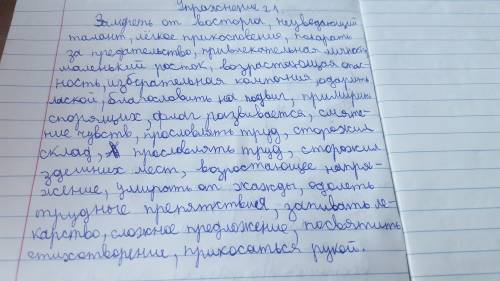 Упражнение 21.
Замереть от восторга, неувядающий
талант, лёгкое прикосновение, покарать
за предательство, привлекательная личность,
маленький росток, возрастающая опас-
ность, избирательная компания, одарить
лаской, благословить на подвиг, примирить
спорящих, флаг развивается, смяте-
ние чувств, прославлять труд, сторожил
склад, прославлять труд, сторожил
здешних мест, возростающее напря-
жение, умирать от жажды, одолеть
трудные препятствия, запивать ле-
карство, сложное предложение, посвятить
стихотворение, прикосаться рукой.